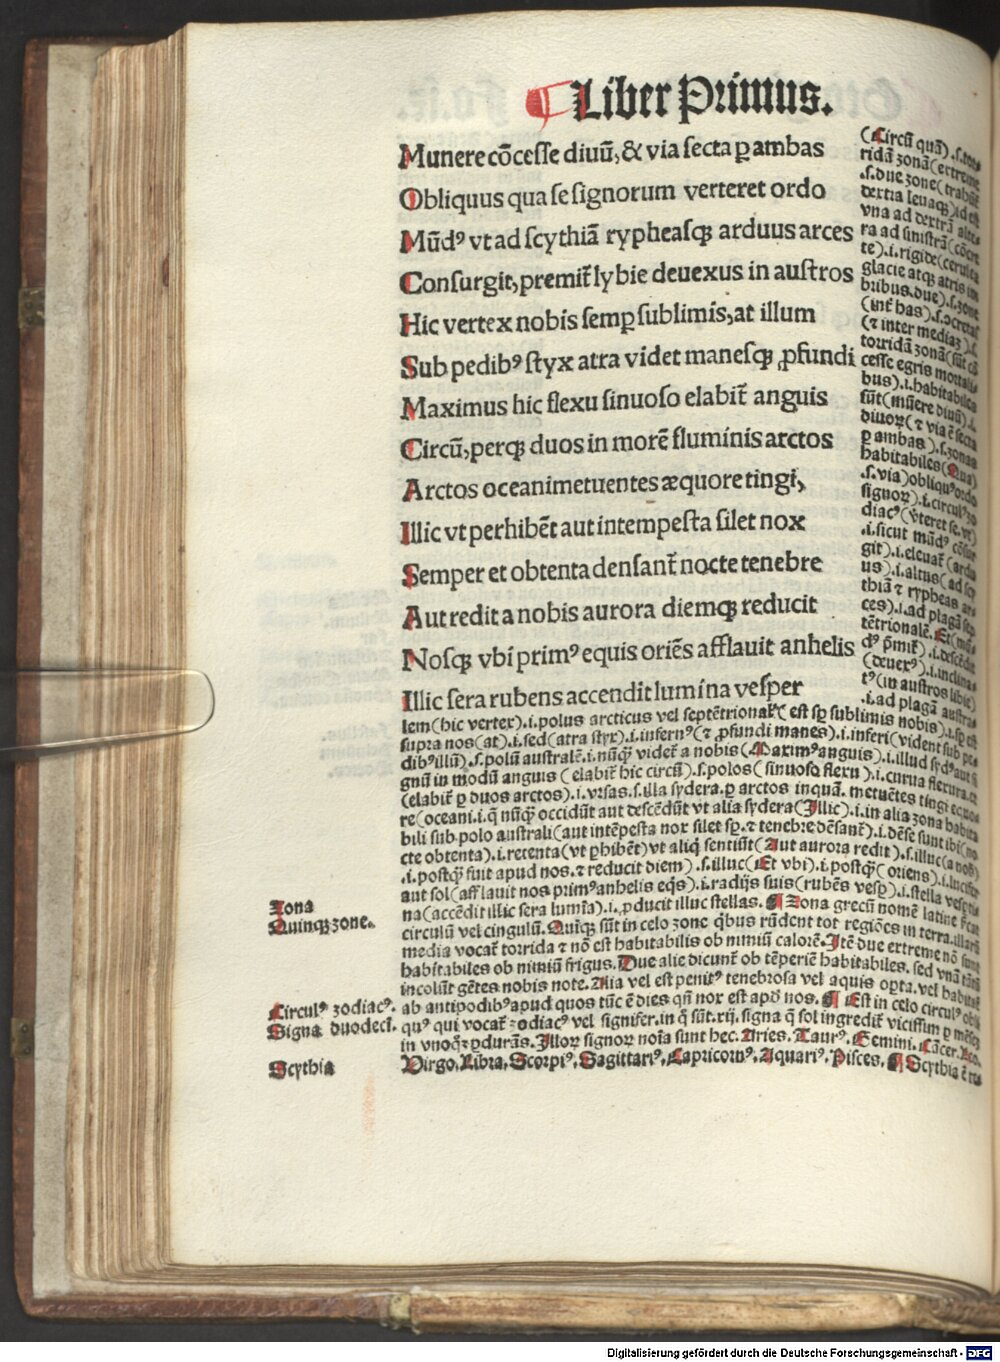 Liber Primus.
Munere cōcesse diuū, & via secta ꝑ ambas
Obliquus qua se signorum verteret ordo
Mūdꝰ vt ad scythiā rypheasqꝫ arduus arces
Consurgit, premit̄ lybie deuexus in austros
Hic vertex nobis semꝑ sublimis, at illum
Sub pedibꝰ styx atra videt manesqꝫ ꝓfundi
Maximus hic flexu sinuoso elabit̄ anguis
Circū, perqꝫ duos in morē fluminis arctos
Arctos oceani metuentes æquore tingi,
Illic vt perhibēt aut intempesta silet nox
Semper et obtenta densant̄ nocte tenebre
Aut redit a nobis aurora diemqꝫ reducit
Nosqꝫ vbi primꝰ equis oriēs afflauit anhelis
Illic sera rubens accendit lumina vesper
(Circū quā) .s.
ridā zonā (extreme
.s. due zone (trahūt̄
dextra leuaqꝫ) id est
vna ad dextrā alte-
ra ad sinistrā (cōcre
te) .i. rigide (cerulea
glacie atqꝫ atris im
bribus. due) .s. zone
(int̄ has) .s.
(⁊ inter mediaꝫ) .s.
torridā zonā (sūt cō
cesse egris mortali-
bus) .i. habitabiles
sūt (mūere diuū) .i.
diuoꝝ (⁊ via ē secta
ꝑ ambas) .s. zonas
habitabiles (Qua)
.s. via) obliquꝰ ordo
signoꝝ) .i. circulꝰ zo
diacꝰ (v̄teret se. vt)
.i. sicut mūdꝰ cōsur
git) .i. eleuat̄ (ardu
us) .i. altus (ad scy
thiā ⁊ rypheas ar
ces) .i. ad plagā sep
tētrionalē. Et (mū
dꝰ p̄mit̄) .i. descēdit
(deuexꝰ) .i. inclina
tꝰ (in austros libie)
.i. ad plagā austra
lem (hic vertex) .i. polus arcticus vel septētrionalꝭ (est sꝑ sublimis nobis) .i. sꝑ est
supra nos (at) .i. sed (atra styx) .i. infernꝰ (⁊ ꝓfundi manes) .i. inferi (vident sub pe
dibꝰ illū) .s. polū australē .i. nūqꝫ videt̄ a nobis (Maximꝰ anguis) .i. illud
gnū in modū anguis (elabit̄ hic circū) .s. polos (sinuoso flexu) .i. curua flexura
(elabit̄ ꝑ duos arctos) .i. vrsas .s. illa sydera. ꝑ arctos inquā. metuētes tingi equo
re (oceani .i. q̄ nūqꝫ occidūt aut descēdūt vt alia sydera (Illic) .i. in alia zona habita
bili sub polo australi (aut intēpesta nox silet sꝑ. ⁊ tenebre dēsant̄) .i. dēse sunt ibi (no
cte obtenta) .i. retenta (vt ꝑhibēt) vt aliq̄ sentiūt (Aut aurora redit) .s. illuc (a nob)
.i. postqꝫ fuit apud nos. ⁊ reducit diem) .s. illuc (Et vbi) .i. postqꝫ (oriens) .i. lucifer
aut sol (afflauit nos primꝰ anhelis eqs) .i. radijs suis (rubēs vesꝑ) .i. stella vesꝑti
na (accēdit illic sera lumīa) .i. ꝓducit illuc stellas. ¶ Zona grecū nomē latine
circulū vel cingulū. Quīqꝫ sūt in celo zone q̄bus rn̄dent tot regiōes in terra. illarū
media vocat̄ torrida ⁊ nō est habitabilis ob nimiū calorē. Itē due extreme nō sunt
habitabiles ob nimiū frigus. Due alie dicunt̄ ob tēperiē habitabiles. sed vnā
incolūt gētes nobis note. Alia vel est penitꝰ tenebrosa vel aquis opta. vel habitat̄
ab antipodibꝰ apud quos tūc ē dies qn̄ nox est apd̄ nos. ¶ Est in celo circulꝰ obli
quꝰ qui vocat̄ zodiacꝰ vel signifer. in q̄ sūt .xij. signa q̄ sol ingredit̄ vicissim ꝑ mēses
in vnoqꝫ ꝑdurās. Illoꝝ signoꝝ noīa sunt hec. Aries. Taurꝰ. Gemini. Cācer. Leo.
Virgo. Libra. Scorpiꝰ. Sagittariꝰ. Capricornꝰ. Aquariꝰ. Pisces. ¶ Scythia ē
Zona
Quinqꝫ zone.
Circulꝰ zodiacꝰ.
Signa duodeci.
Scythia
Digitalisierung gefördert durch die Deutsche Forschungsgemeinschaft - DFG